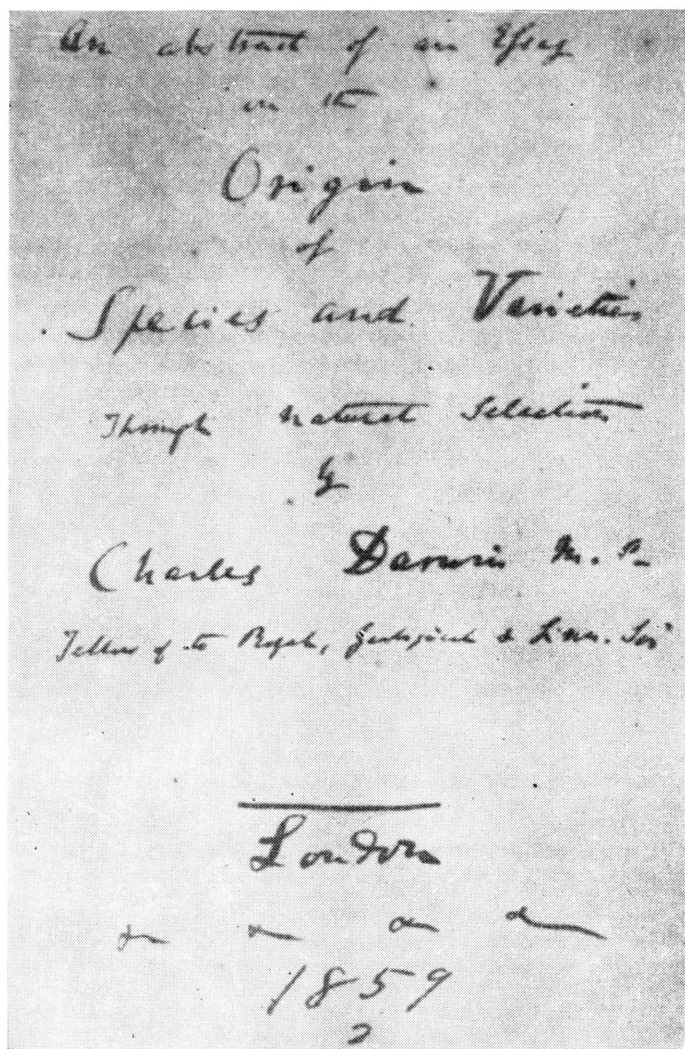 An abstract of an Essay
on the
Origin
of
Species and Varieties
Through natural Selection
by
Charles Darwin M. A
Fellow of the Royal, Geological & Linn. Socy
London
&c &c &c &c
1859